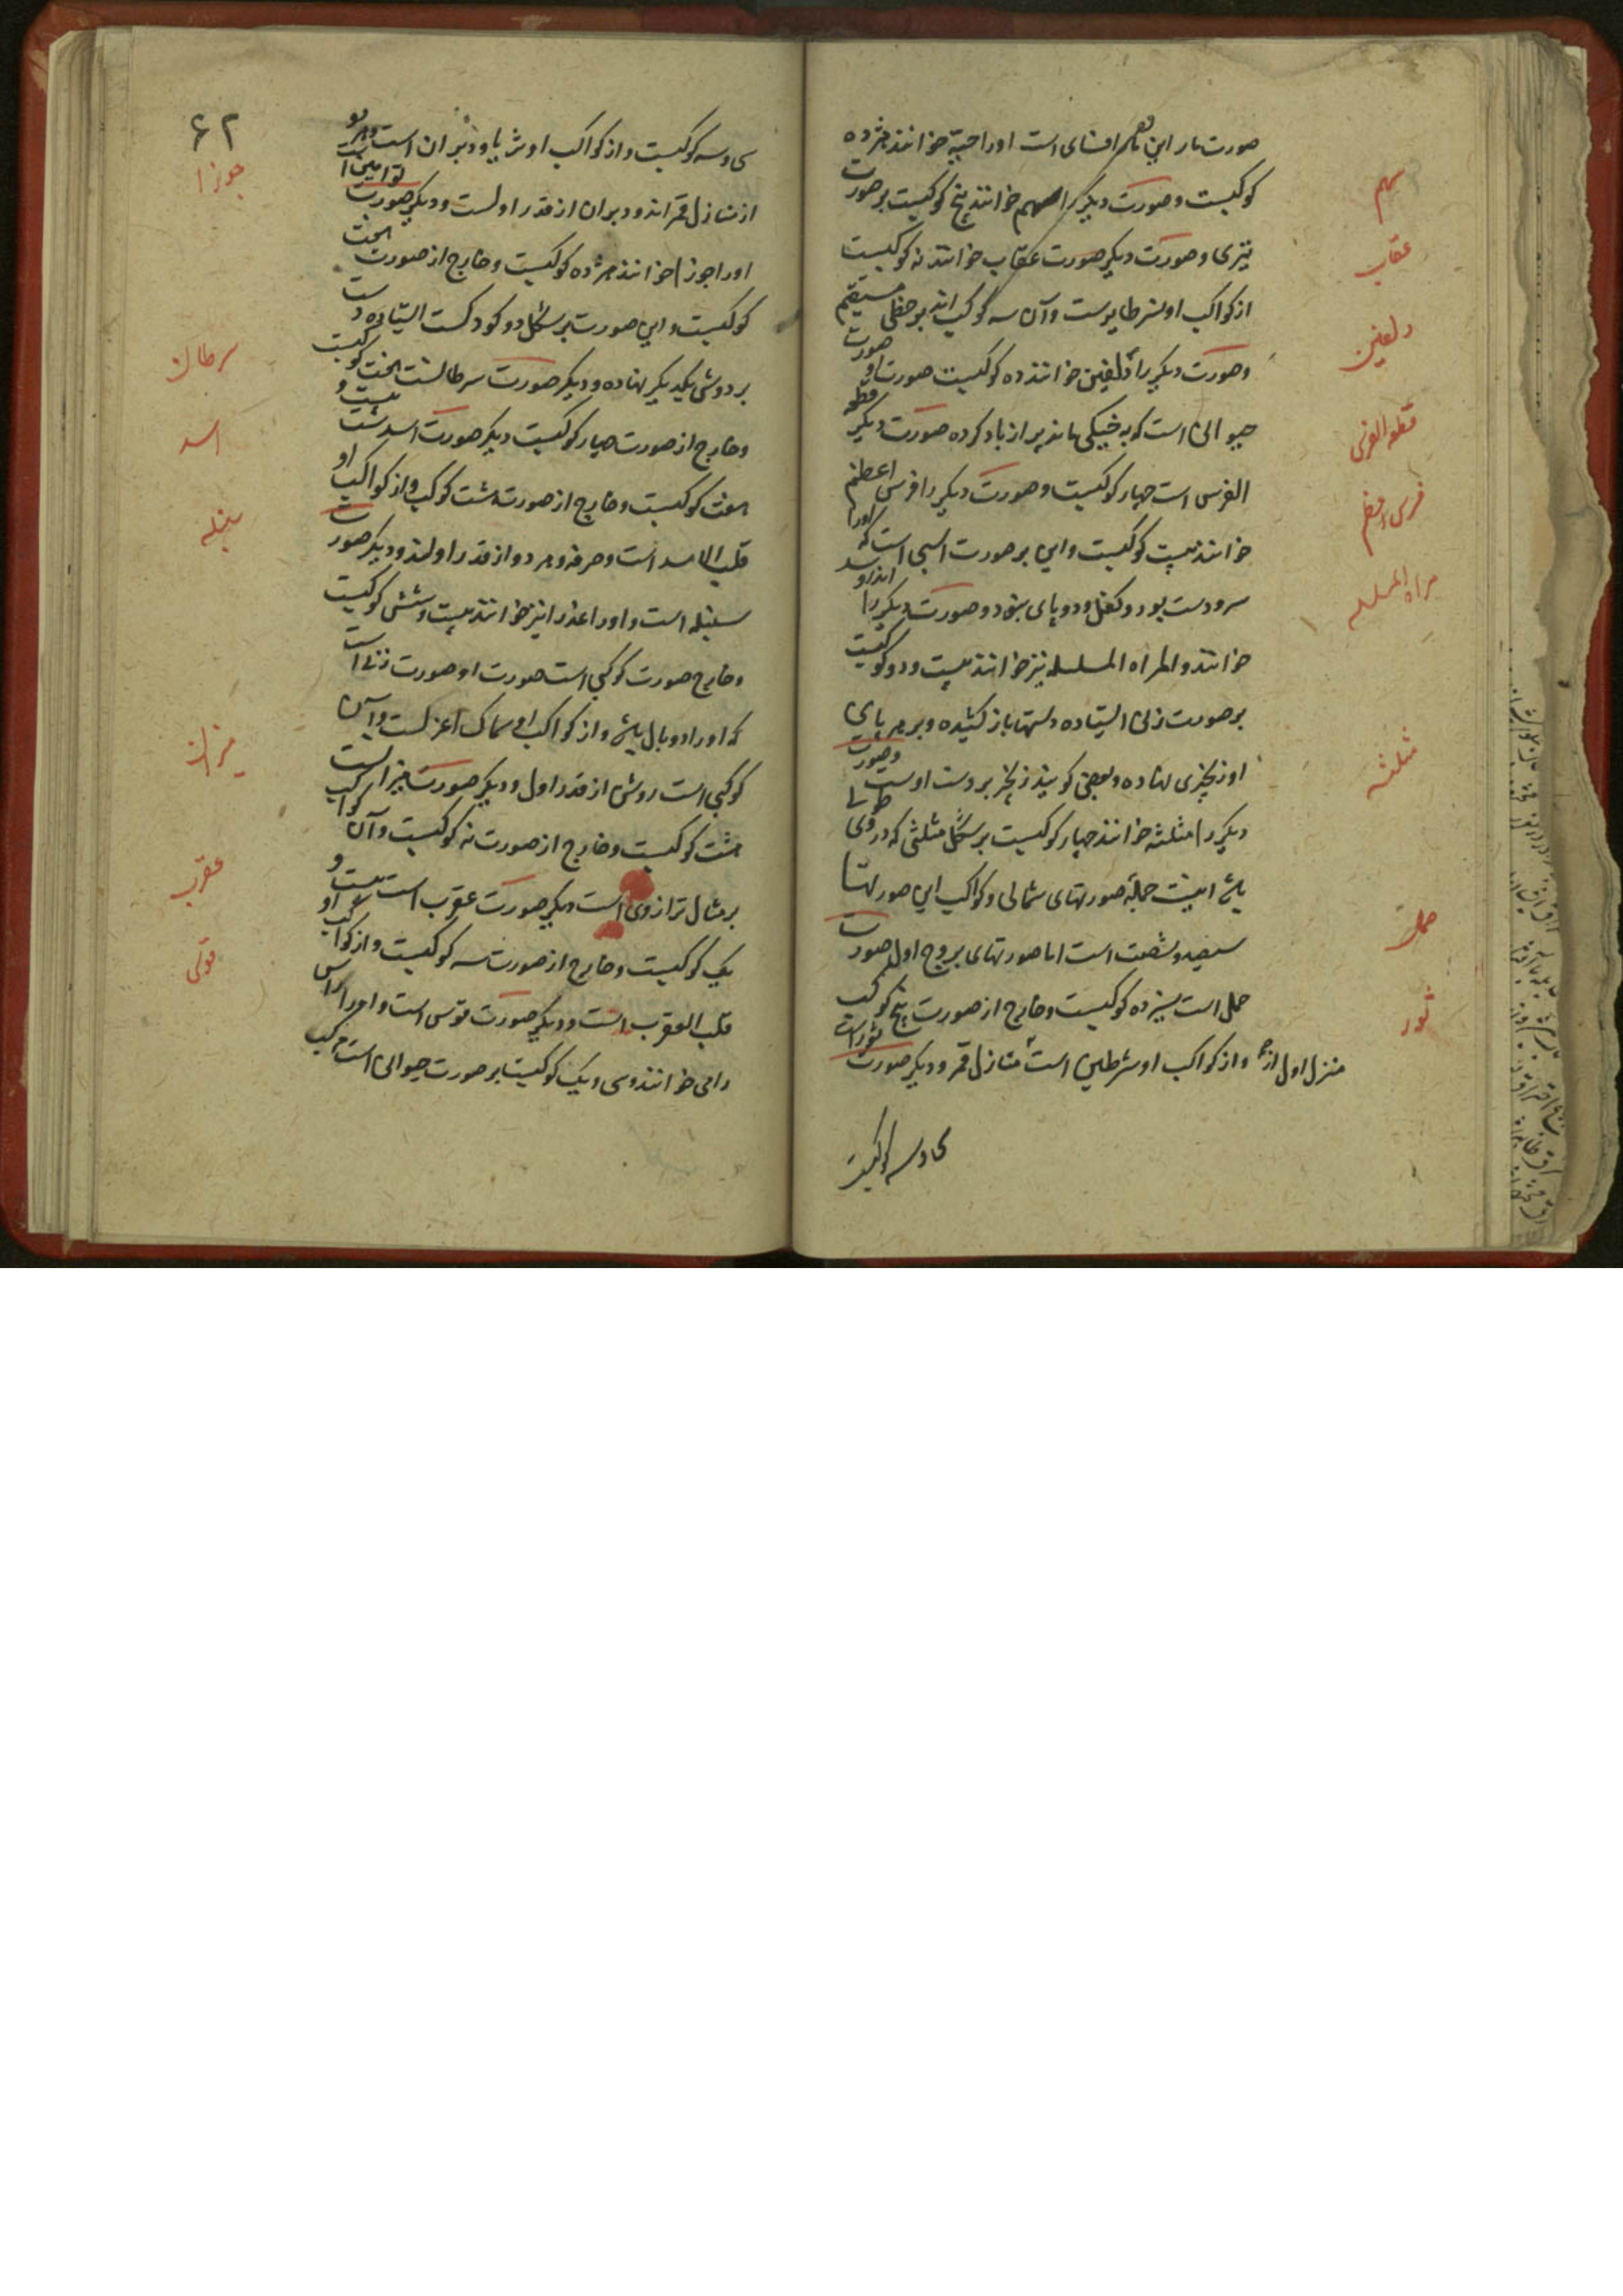 صورت مار این هم افسای است اورا حیة خوانند هژده
کوکبست و صورت دیگر را سهم خوانند پنج کوکبست بر صورت
تیری و صورت دیگر صورت عقاب خوانند نه کوکبست
از کواکب او نسر طایرست و آن سه کوکب اند بر خطی مستقیم
و صورت دیگر را دلفین خوانند ده کوکبست صورت او صورت
حیوانی است که به خیکی ماند پر از باد کرده صورت دیگر قطعة
الفرس است چهار کوکبست و صورت دیگر را فرس اعظم
خوانند بیست کوکبست و این بر صورت اسبی است که اورا
سر و دست بود و کفل و دو پای نبود و صورت دیگر را
خوانند و المراه المسلسله نیز خوانند بیست و دو کوکبست
بر صورت زنی ایستاده دستها باز کشیده و بر هر پای
او زنجیری نهاده و بعضی کویند زنجیر بر دست اوست و صورت
دیگر را مثلثه خوانند چهار کوکبست بر شکل مثلثی که در وی طولی
باشد اینست جمله صورتهای شمالی و کواکب این صورتها
سیصد و شصت است اما صورتهای بروج اول صورت
حمل است سیزده کوکبست و خارج از صورت پنج کوکب
منزل اول از و از کواکب او شرطین است منازل قمر و دیگر صورت ثور است
سی و سه کوکبست
سهم
عقاب
دلفین
قطعه الفرس
فرس اعظم
مراه المسلسله
مثلثه
حمل
ثور
۶۲
سی و سه کوکبست و از کواکب او ثریا و دبران است و هر دو
از منازل قمر اند و دبران از قدر اولست و دیگر صورت توامین است
اورا جوزا خوانند هژده کوکبست و خارج از صورت هفت
کوکبست و این صورت بر شکل دو کودکست ایستاده دست
بر دوش یکدیگر نهاده و دیگر صورت سرطانست هفت کوکبست
و خارج از صورت چهار کوکبست دیگر صورت اسدست بیست و
هفت کوکبست و خارج از صورت هشت کوکب و از کواکب او
قلب الاسد است و صرفه و هر دو از قدر اولند و دیگر صورت
سنبله است و اورا عذرا نیز خوانند بیست و شش کوکبست
و خارج صورت کوکبی است صورت او صورت زنی است
که اورا دو بال باشد و از کواکب او سماک اعزلست و آن
کوکبی است روشن از قدر اول و دیگر صورت میزانست
هشت کوکبست و خارج از صورت نه کوکبست و آن کواکب
بر مثال ترازوی است دیگر صورت عقرب است بیست و
یک کوکبست و خارج از صورت سه کوکبست و از کواکب او
قلب العقرب است و دیگر صورت قوس است و اورا
رامی خوانند و سی و یک کوکبست بر صورت حیوانی است
جوزا
سرطان
اسد
سنبله
میزان
عقرب
قوس